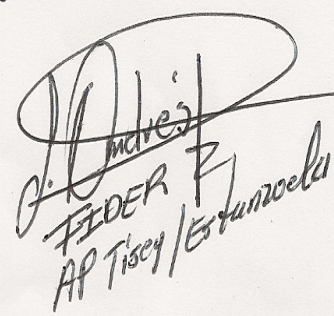 J. Andrés P
FIDER
AP Tisey/Estanzuela